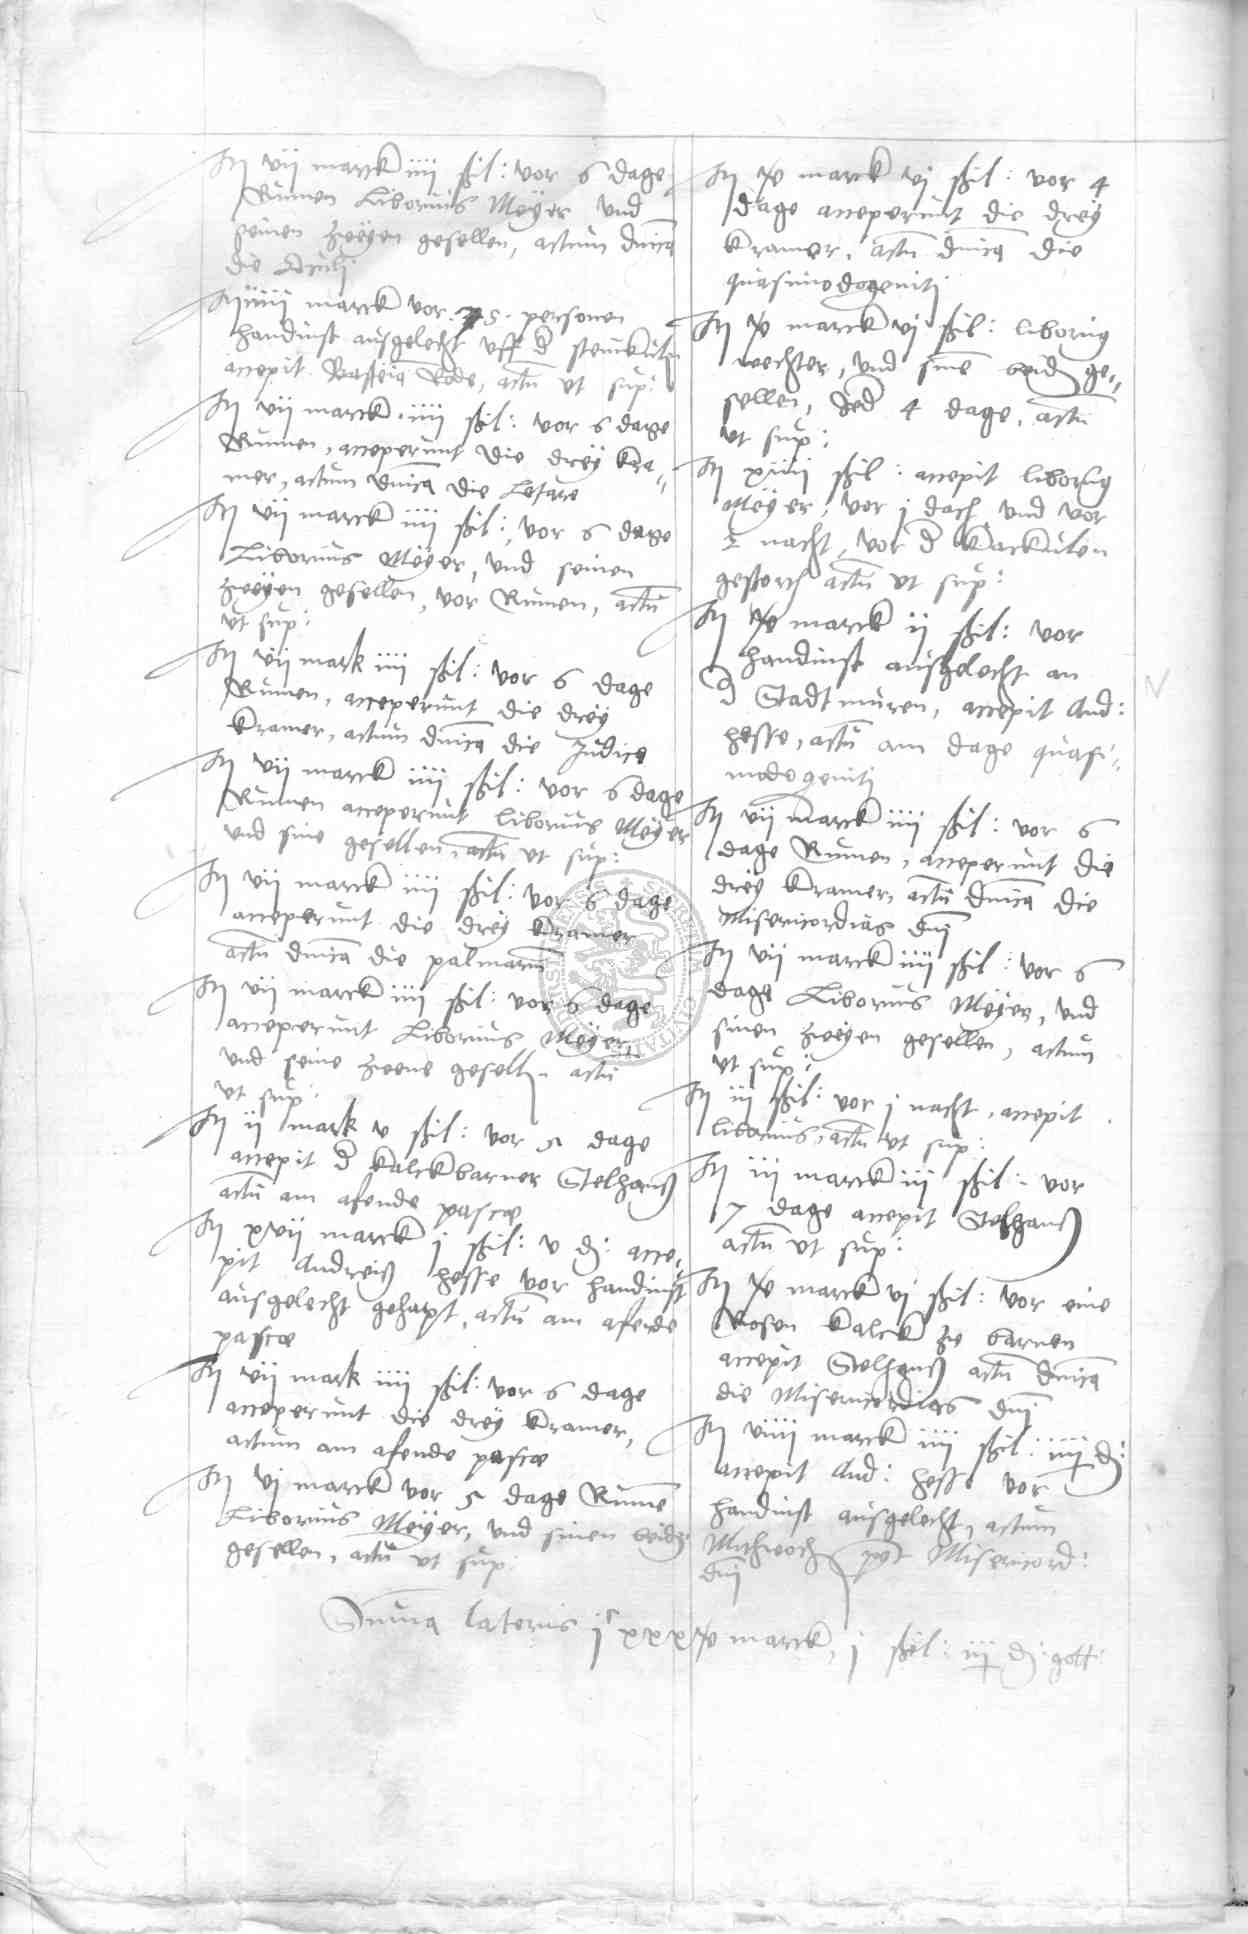 It vij marck iiij ßil: vor 6 dage
Rumen Liborius Meyer vnd
seinen zweyen gesellen, actum dnica
die Oculi
marck vor personen
handinst ausgelecht vff d steinkulen
accepit Rode, actu vt sup:
It vij marck iiij ßil: vor 6 dage
Rumen, acceperunt die drey kra-
mer, actum dnica die Letare
It vij marck iiij ßil: vor 6 dage
Liborius Meyer, vnd seinen
zweyen gesellen, vor Rumen, actu
vt sup:
It vij mark iiij ßil: vor 6 dage
Rumen, acceperunt die drey
kramer, actum dnica die Judica
It vij marck iiij ßil: vor 6 dage
Rumen acceperunt liborius Meyer
vnd sine gesellen, actu vt sup:
It vij marck iiij ßil: vor 6 dage
acceperunt die drey kramer
actu dnica die palmarum
It vij marck iiij ßil: vor 6 dage
acceperunt Liborius Meyer
vnd seine zwene geselln actu
vt sup:
It ij mark v ßil: vor 5 dage
accepit d kalckbarner Stelhanß
actu am afende pascæ
It xvij marck j ßil: v d: acce-
pit Andreiß hesse vor handinst
ausgelecht gehapt, actu am afende
pascæ
It vij mark iiij ßil: vor 6 dage
acceperunt die drey kramer,
actum am afende pascæ
It vj marck vor 5 dage Rumē
Liborius Meyer, vnd sinen beidē
gesellen, actu vt sup:
It marck vj ßil: vor 4
dage acceperunt die drey
kramer, actu dnica die
quasimodogeniti
It marck vj ßil: liborius
wechter, vnd sine beide ge-
sellen, 4 dage, actu
vt sup:
It xiiij ßil: accepit liborius
Meyer, vor j dach vnd vor
nacht, vor d kackulen
actu vt sup:
It marck ij ßil: vor
handinst ausgelecht an
d Stadtmuren, accepit And:
hesse, actu am dage quasi-
modogeniti
It vij marck iiij ßil: vor 6
dage Rumen, acceperunt die
drey kramer, actu dnica die
Misericordias dni
It vij marck iiij ßil: vor 6
dage Liborius Meyer, vnd
sinen zweyen gesellen, actum
vt sup:
It iij ßil: vor j nacht, accepit
liborius, actu vt sup:
It iij marck iij ßil: vor
7 dage accepit Stelhanß
actu vt sup:
It marck vj ßil: vor eine
Rosen kalck zu barnen
accepit Stelhanß actu dnica
die Misericordias dni
It viiij marck iiij ßil: iiij d:
accepit And: hesse vor
handinst ausgelecht, actum
Mithwoch post Misericord:
dni
Suma lateris jc xxx marck, j ßil: iij d: gott: